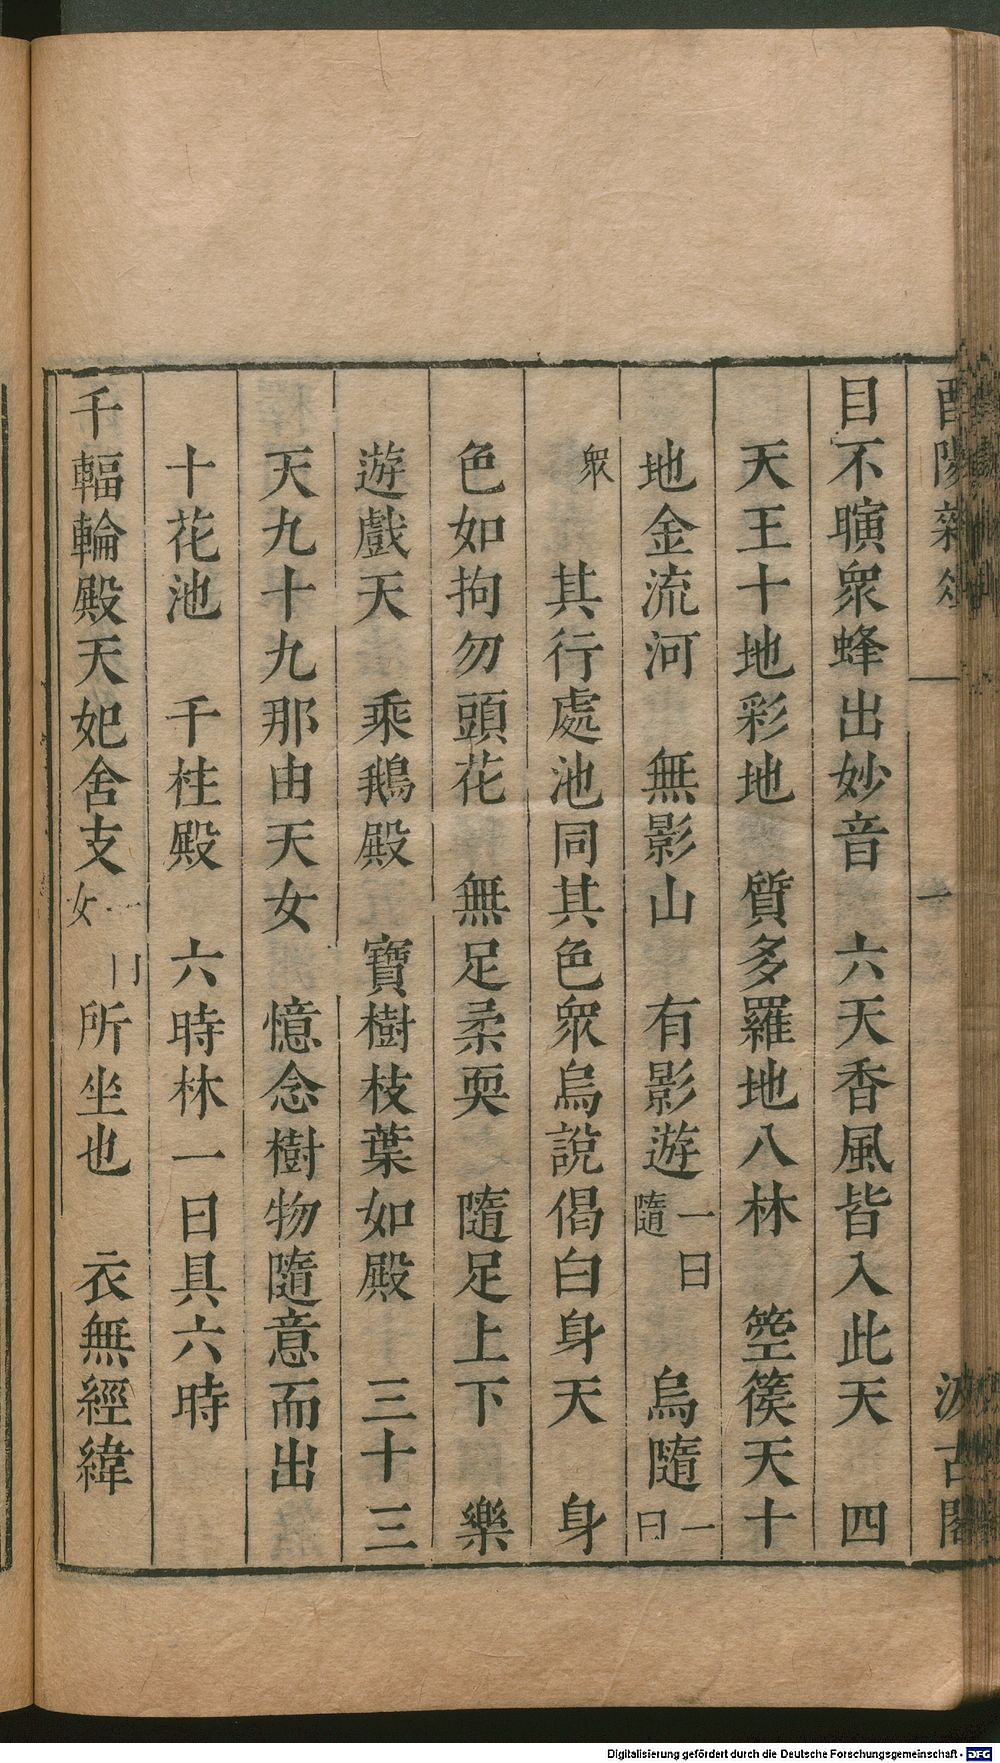 酉陽雜俎 一 汲古閣
目不瞚衆蜂出妙音 六天香風皆入此天 四
天王十地彩地 質多羅地八林 箜篌天十
地金流河 無影山 有影遊一曰隨 烏隨一曰
衆 其行處池同其色衆烏說偈白身天 身
色如拘勿頭花 無足柔耎 隨足上下 樂
遊戲天 乘鵝殿 寶樹枝葉如殿 三十三
天九十九那由天女 憶念樹物隨意而出
十花池 千柱殿 六時林一日具六時
千輻輪殿天妃舍支一曰女所坐也 衣無經緯
Digitalisierung gefördert durch die Deutsche Forschungsgemeinschaft - DFG